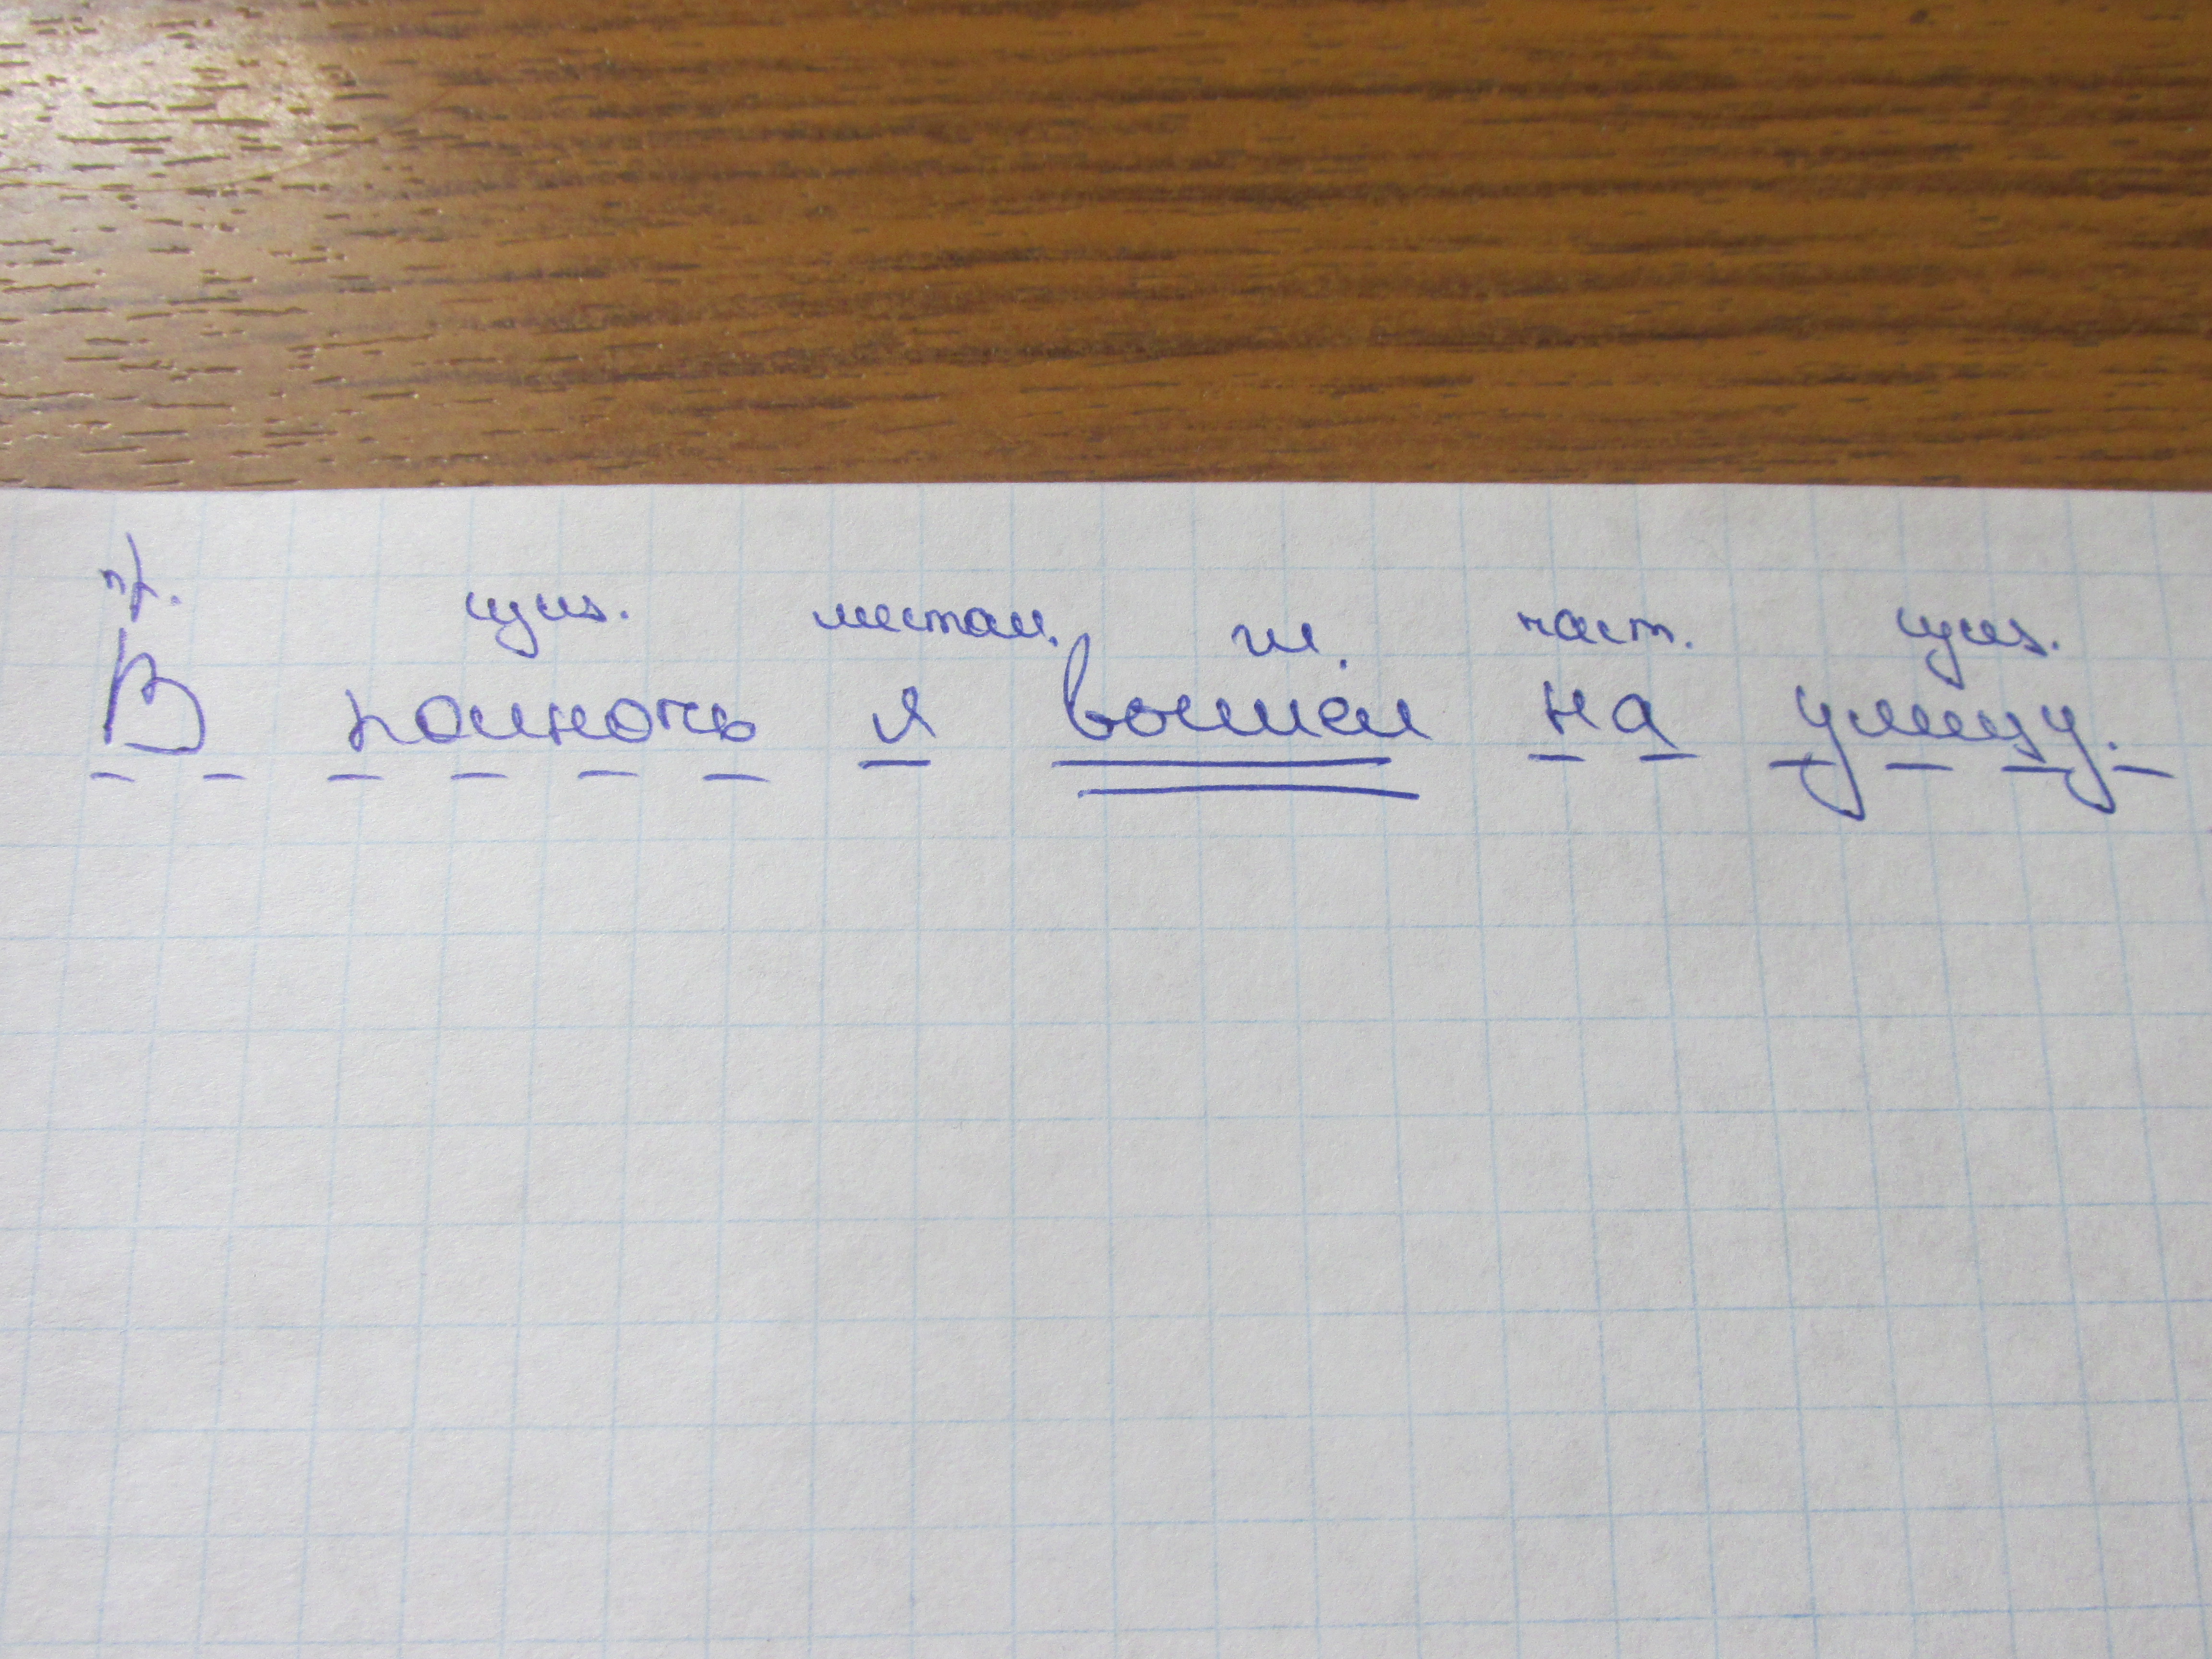 пр. сущ. местоим. гл. част. сущ.
В полночь я вошел на улицу.